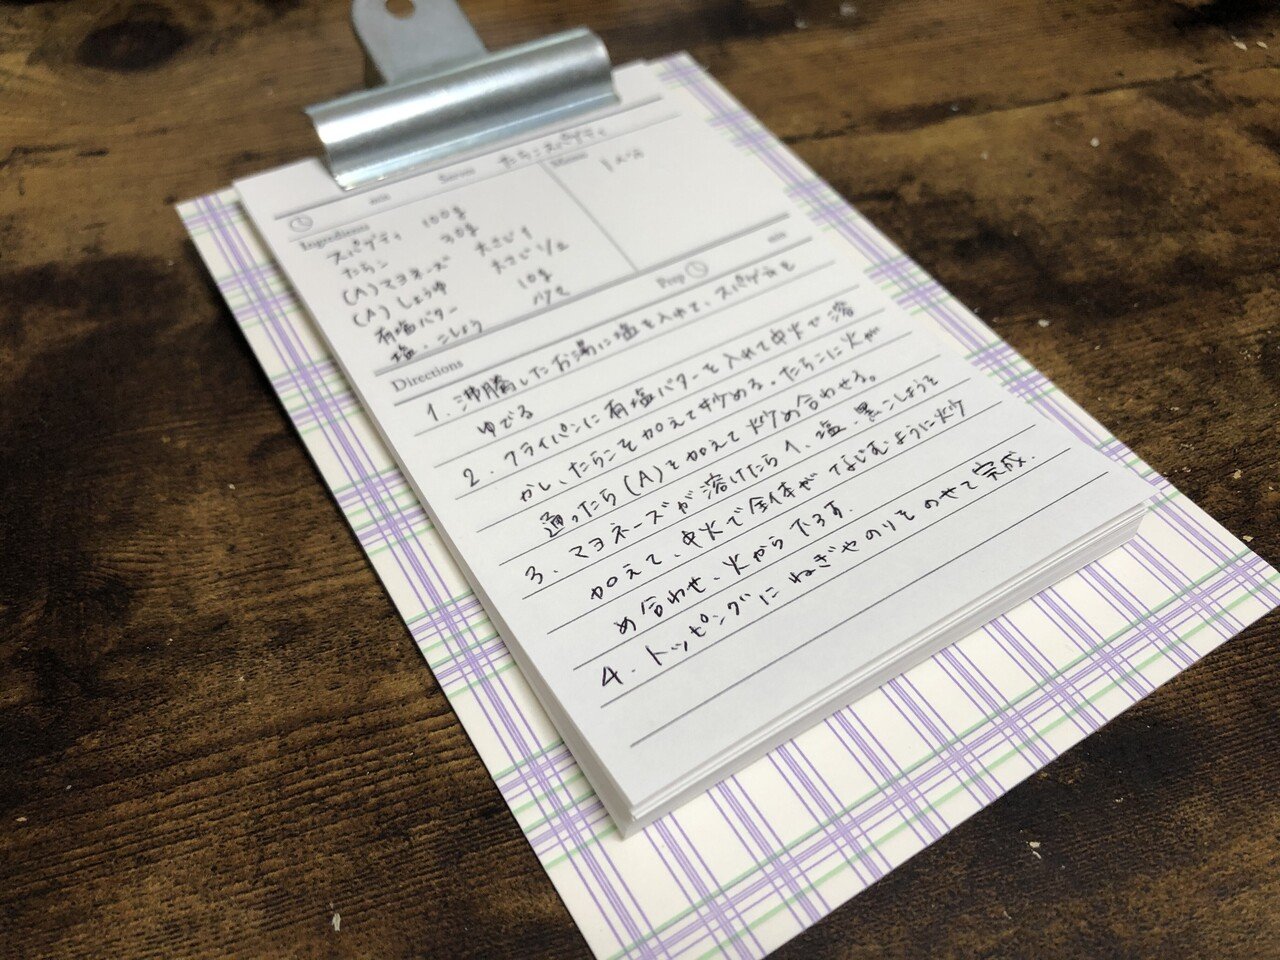 たらこスパゲティ
Serves
min
Memo
1人分
Ingredients
スパゲティ 100g
たらこ 30g
(A)マヨネーズ 大さじ1
(A)しょうゆ 大さじ1/2
有塩バター 10g
塩、こしょう
Prep
min
Directions
1. 沸騰したお湯に塩を入れて、スパゲティを
ゆでる
2. フライパンに有塩バターを入れて中火で溶
かし、たらこを加えて炒める。たらこに火が
通ったら(A)を加えて炒め合わせる。
3. マヨネーズが溶けたら1、塩、黒こしょうを
加えて、中火で全体がなじむように炒
め合わせ、火から下ろす.
4. トッピングにねぎやのりをのせて完成.